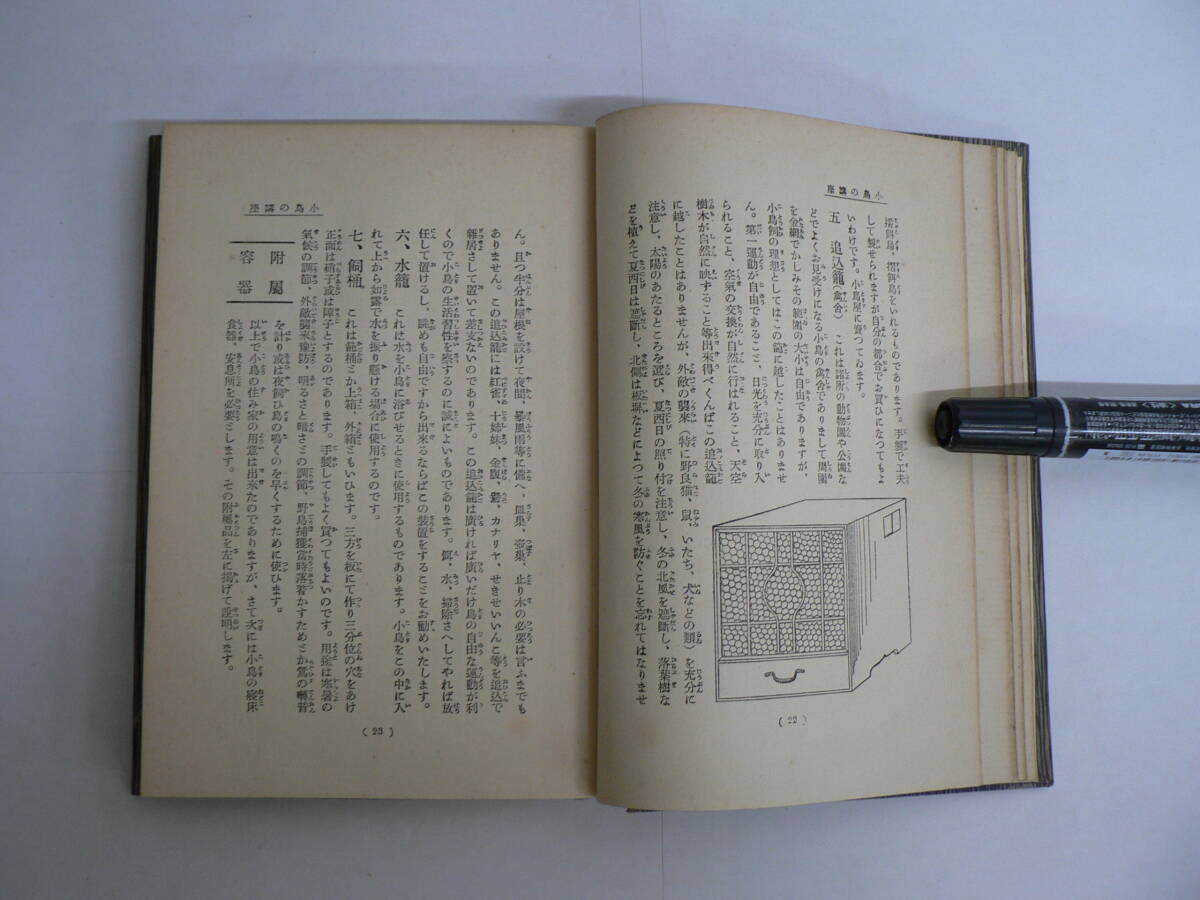 小鳥の講座
擂餌鳥、摺餌鳥をいれるものであります。手製で工夫
して製せられますが自分の都合でお買ひになつてもよ
いわけです。小鳥屋に賣つてゐます。
五、追込籠(禽舍) これは諸所の動物園や公園な
どでよくお見受けになる小鳥の禽舍でありまして周圍
を金網でかしみその範圍の大小は自由でありますが、
小鳥飼の理想としてはこの籠に越したことはありませ
ん。第一運動が自由であること、日光を充分に取り入
られること、空氣の交換が自然に行はれること、天空
樹木が自然に映ずること等出來得べくんばこの追込籠
に越したことはありませんが、外敵の襲來(特に野良猫、鼠、いたち、犬などの類)を充分に
注意し、太陽のあたるところを選び、夏西日の照り付を注意し、冬の北風を遮斷し、落葉樹な
どを植えて夏西日は遮斷し、北側は板塀などによつて冬の寒風を防ぐことを忘れてはなりませ
(22)
小鳥の講座
ん。且つ半分は屋根を設けて夜間、暴風雨等に備へ、皿巢、壺巢、止り木の必要は言ふまでも
ありません。この追込籠には紅雀、十姉妹、金腹、鶯、カナリヤ、せきせいいんこ等を追込で
雜居さして置いて差支ないのであります。この追込籠は廣ければ廣いだけ鳥の自由な運動が利
くので小鳥の生活習性を察するのに誠によいものであります。餌、水、掃除さへしてやれば放
任して置けるし、眺めも自由ですから出來るならばこの裝置をすることをお勸めいたします。
六、水籠 これは水を小鳥に浴びせるときに使用するものであります。小鳥をこの中に入
れて上から如露で水を振り懸ける場合に使用するのです。
七、飼桶 これは籠桶とか上箱、外箱ともいひます。三方を板にて作り三分位の穴をあけ
正面は硝子或は障子とするのであります。手製してもよく買つてもよいのです。用途は寒暑の
氣候の調節、外敵襲來豫防、明るさと暗さとの調節、野鳥捕獲當時落着かすためとか鶯の囀音
を計り或は夜飼ひ鳥の鳴くのを早くするために使ひます。
附屬
容器
以上で小鳥の住み家の用意は出來たのでありますが、さて次には小鳥の寢床
食器、安息所を必要とします。その附屬品を左に揭げて說明します。
(23)